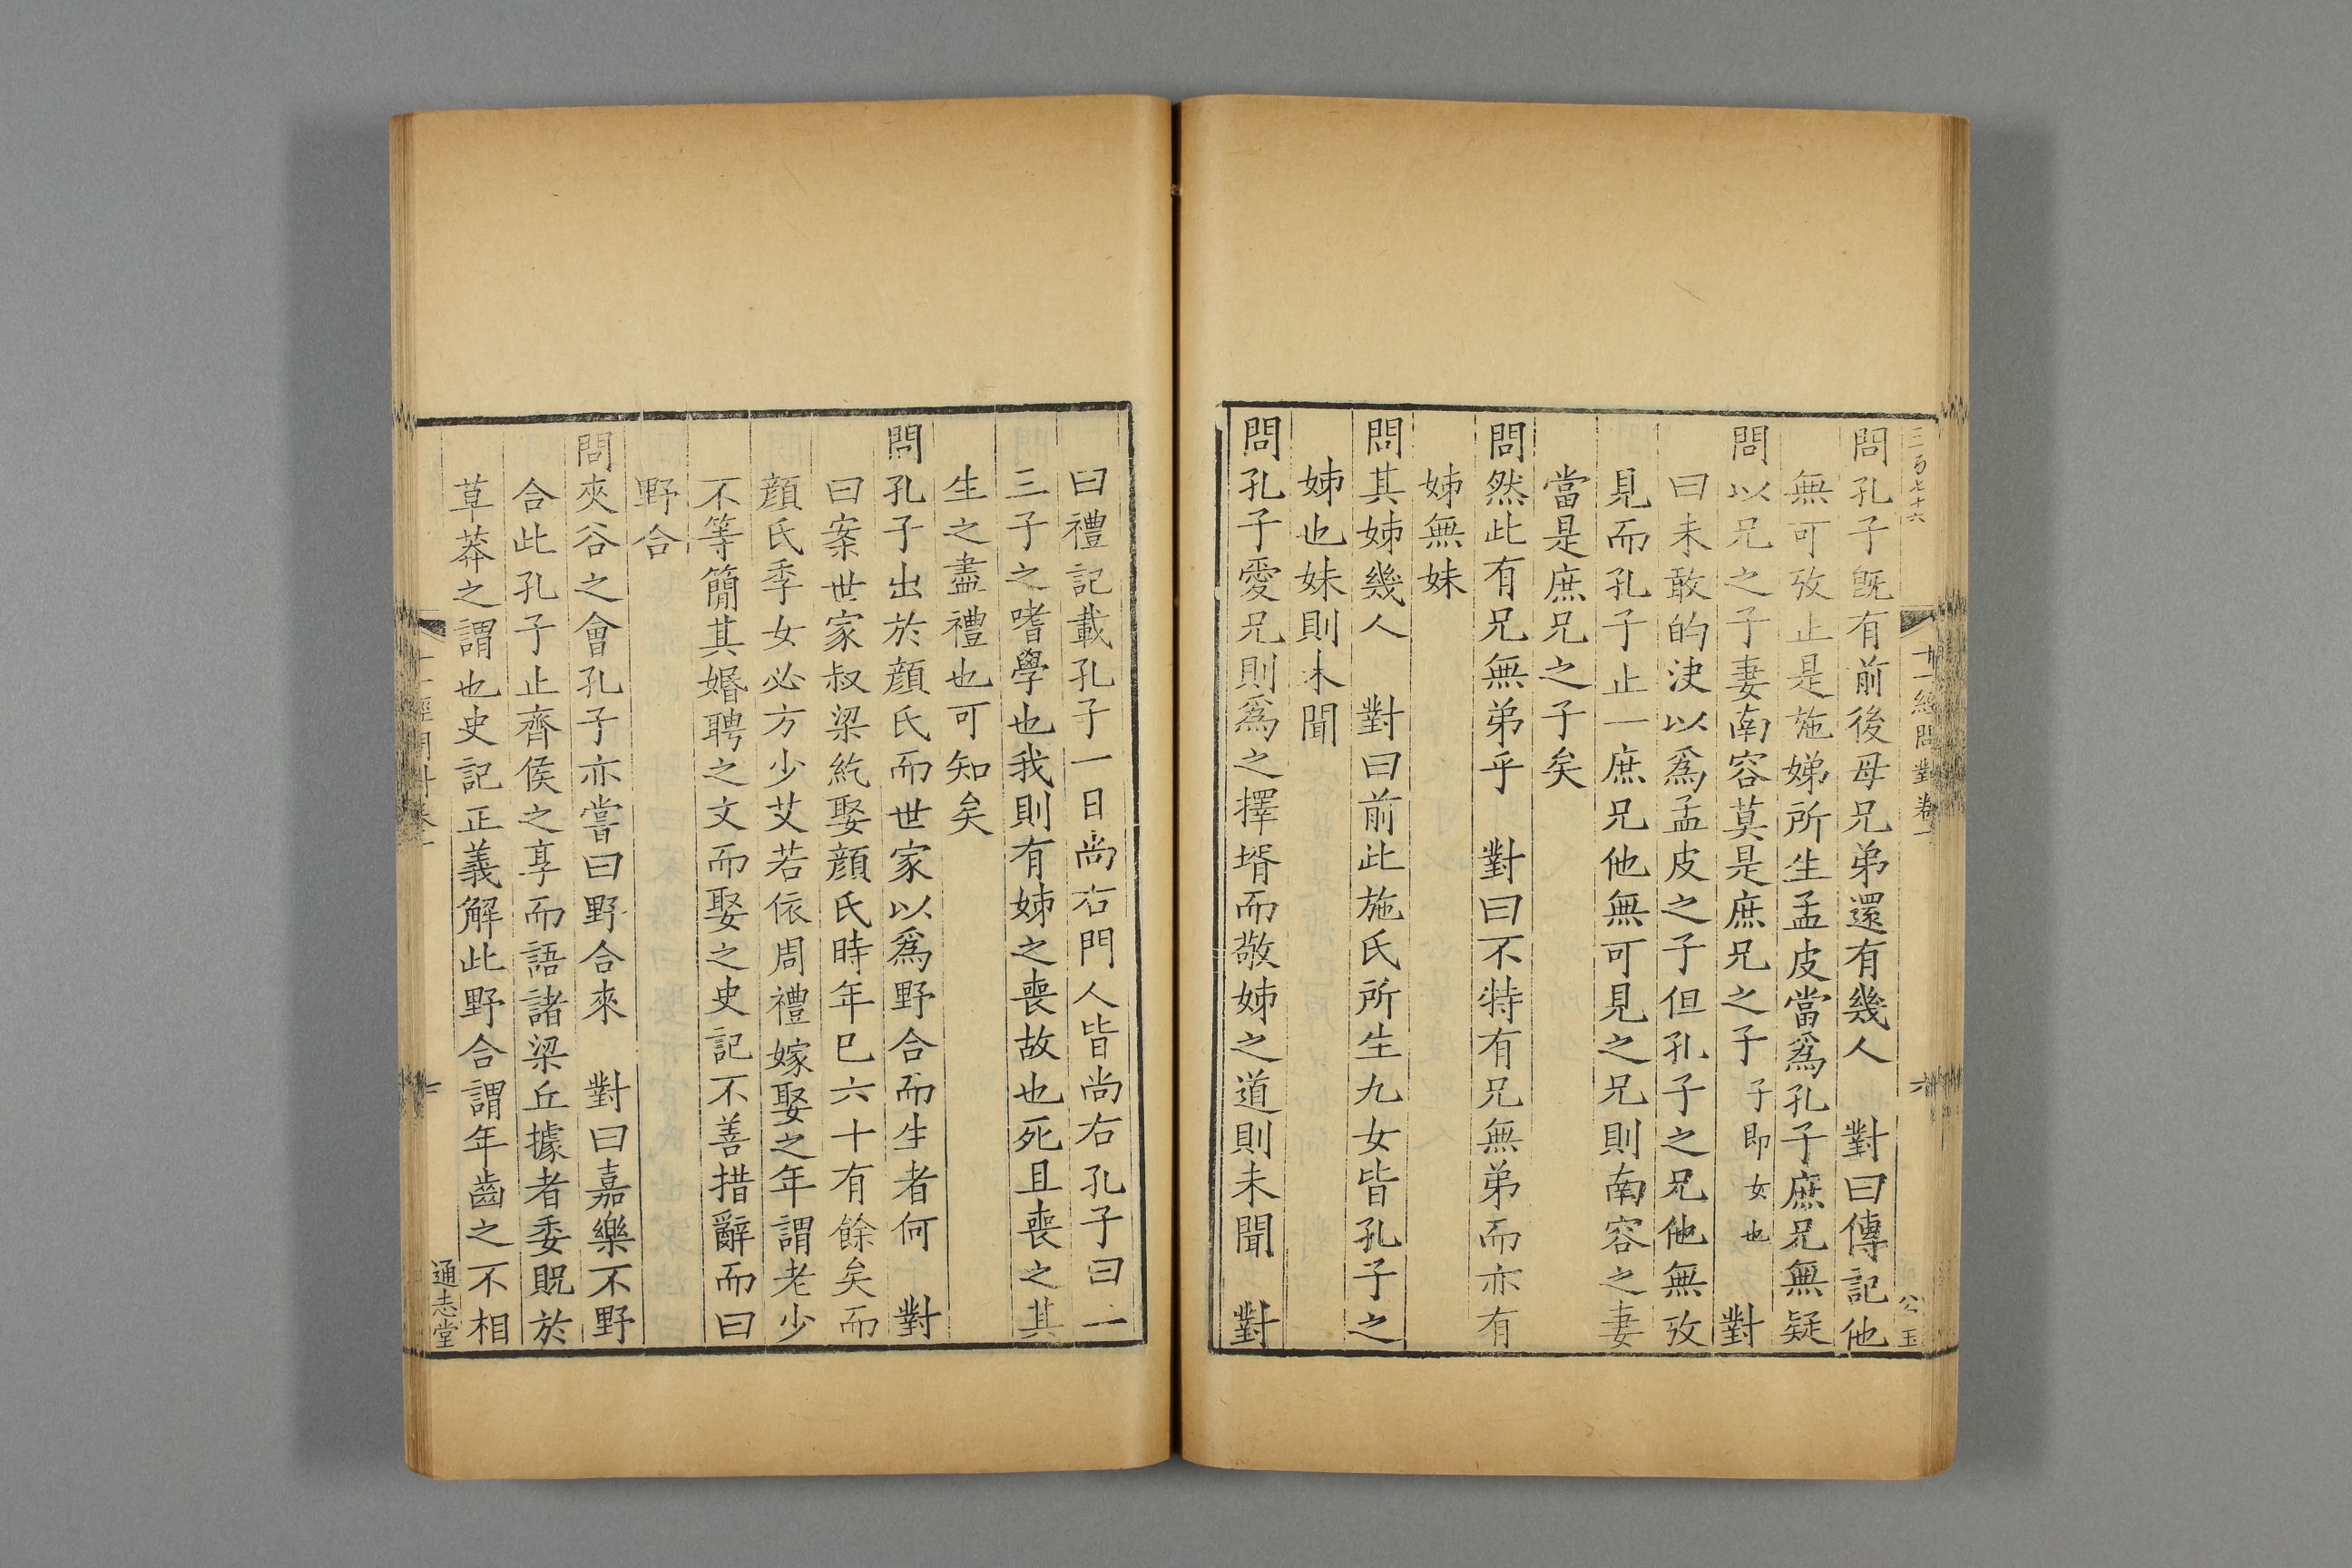 三百七十六
十一經問對卷一
六
公玉
問孔子旣有前後母兄弟還有幾人　對曰傳記他
無可攷止是施娣所生孟皮當爲孔子庶兄無疑
問以兄之子妻南容莫是庶兄之子子即女也　對
曰未敢的決以爲孟皮之子但孔子之兄他無攷
見而孔子止一庶兄他無可見之兄則南容之妻
當是庶兄之子矣
問然此有兄無弟乎　對曰不特有兄無弟而亦有
姊無妹
問其姊幾人　對曰前此施氏所生九女皆孔子之
姊也妹則未聞
問孔子愛兄則爲之擇壻而敬姊之道則未聞　對
曰禮記載孔子一日尚右門人皆尚右孔子曰二
三子之嗜學也我則有姊之喪故也死且喪之其
生之盡禮也可知矣
問孔子出於顔氏而世家以爲野合而生者何　對
曰案世家叔梁紇娶顔氏時年已六十有餘矣而
顔氏季女必方少艾若依周禮嫁娶之年謂老少
不等簡其婚聘之文而娶之史記不善措辭而曰
野合
問夾谷之會孔子亦嘗曰野合來　對曰嘉樂不野
合此孔子止齊侯之享而語諸梁丘據者委貺於
草莽之謂也史記正義解此野合謂年齒之不相
通志堂